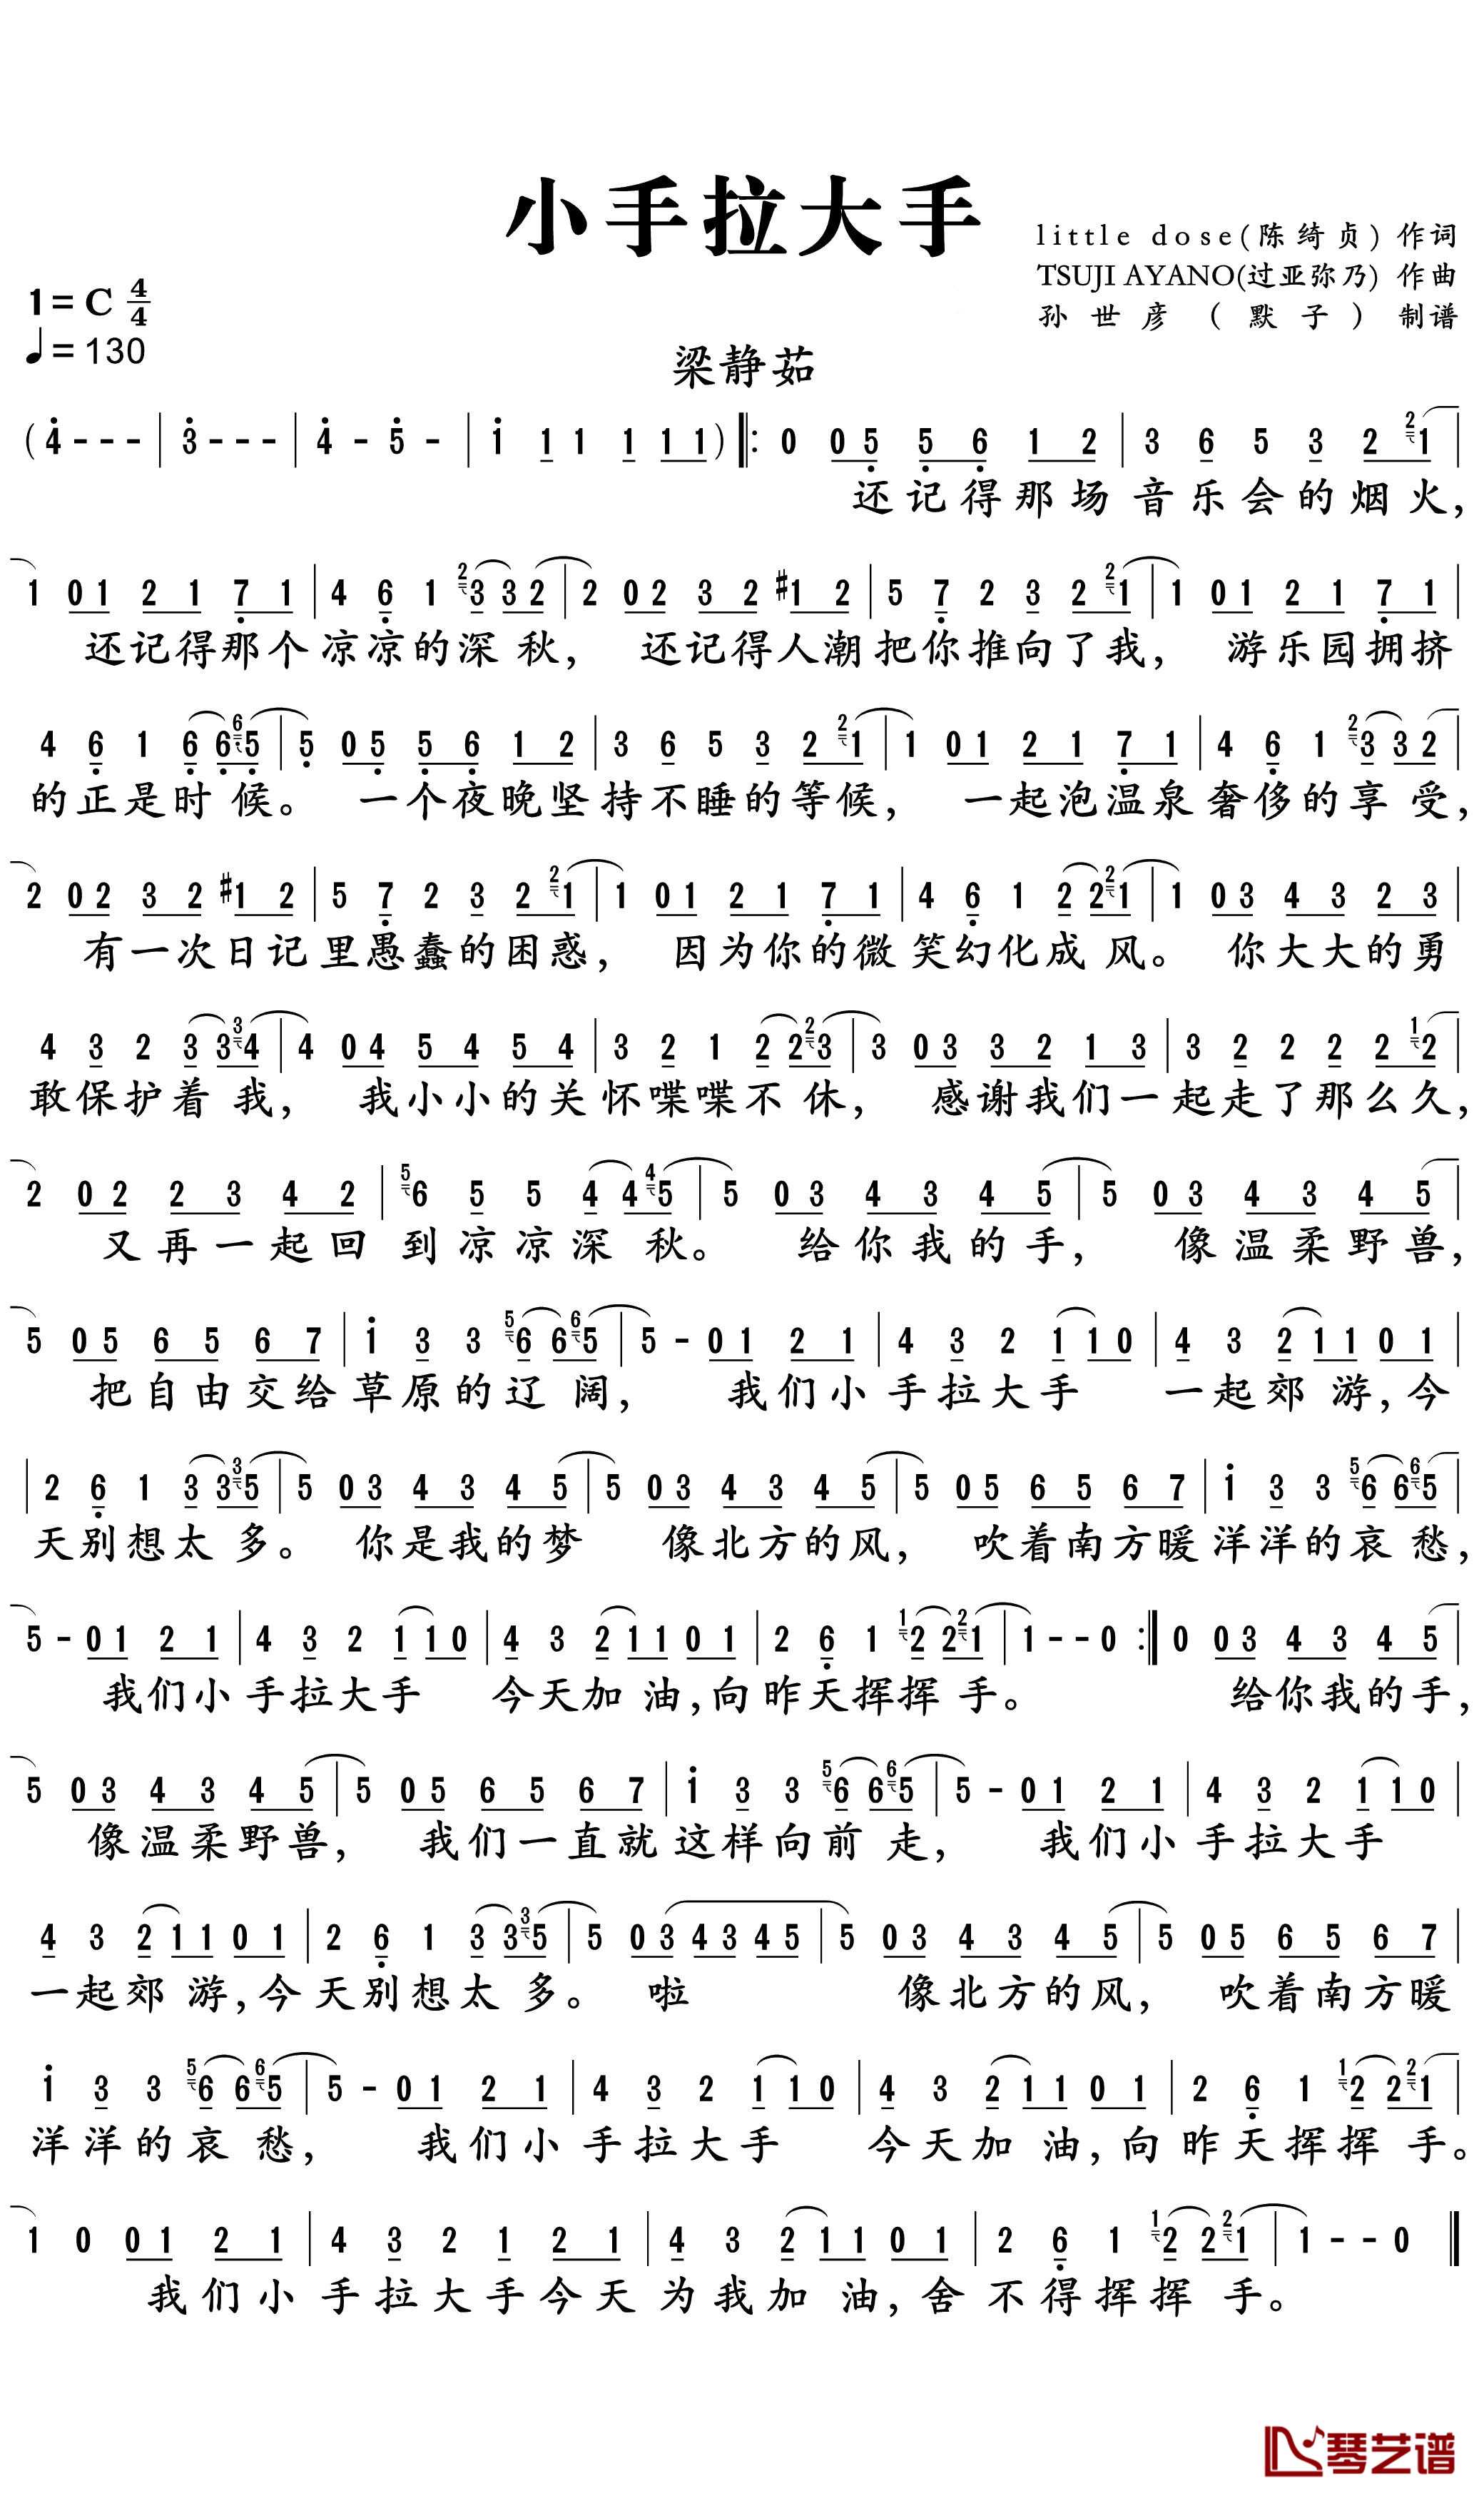 小手拉大手
little dose(陈绮贞) 作词
TSUJI AYANO(过亚弥乃) 作曲
孙世彦（默子）制谱
1=C 4/4
♩=130
梁静茹
(4̇--- | 3̇--- | 4̇-5̇- | 1̇ 1 1 1 1 1 ) ‖: 0 0 5̣ 5̣ 6̣ 1 2 | 3 6 5 3 2 ²1 |
还记得那场音乐会的烟火,
1 0 1 2 1 7̣ 1 | 4 6̣ 1 ²3 3 2 | 2 0 2 3 2 #1 2 | 5 7̣ 2 3 2 ²1 | 1 0 1 2 1 7̣ 1 |
还记得那个凉凉的深秋, 还记得人潮把你推向了我, 游乐园拥挤
4 6̣ 1 6̣ 6̣ ⁶5̣ | 5̣ 0 5̣ 5̣ 6̣ 1 2 | 3 6 5 3 2 ²1 | 1 0 1 2 1 7̣ 1 | 4 6̣ 1 ²3 3 2 |
的正是时候。 一个夜晚坚持不睡的等候, 一起泡温泉奢侈的享受,
2 0 2 3 2 #1 2 | 5 7̣ 2 3 2 ²1 | 1 0 1 2 1 7̣ 1 | 4 6̣ 1 2 2 ²1 | 1 0 3 4 3 2 3 |
有一次日记里愚蠢的困惑, 因为你的微笑幻化成风。 你大大的勇
4 3 2 3 3 ³4 | 4 0 4 5 4 5 4 | 3 2 1 2 2 ²3 | 3 0 3 3 2 1 3 | 3 2 2 2 2 ¹2 |
敢保护着我, 我小小的关怀喋喋不休, 感谢我们一起走了那么久,
2 0 2 2 3 4 2 | ⁵6 5 5 4 4 ⁴5 | 5 0 3 4 3 4 5 | 5 0 3 4 3 4 5 |
又再一起回到凉凉深秋。 给你我的手, 像温柔野兽,
5 0 5 6 5 6 7 | 1̇ 3 3 ⁵6 6 ⁶5 | 5 - 0 1 2 1 | 4 3 2 1 1 0 | 4 3 2 1 1 0 1 |
把自由交给草原的辽阔, 我们小手拉大手 一起郊游,今
| 2 6̣ 1 3 3 ³5 | 5 0 3 4 3 4 5 | 5 0 3 4 3 4 5 | 5 0 5 6 5 6 7 | 1̇ 3 3 ⁵6 6 ⁶5 |
天别想太多。 你是我的梦 像北方的风, 吹着南方暖洋洋的哀愁,
5 - 0 1 2 1 | 4 3 2 1 1 0 | 4 3 2 1 1 0 1 | 2 6̣ 1 ¹2 2 ²1 | 1 - - 0 :‖ 0 0 3 4 3 4 5 |
我们小手拉大手 今天加油,向昨天挥挥手。 给你我的手,
5 0 3 4 3 4 5 | 5 0 5 6 5 6 7 | 1̇ 3 3 ⁵6 6 ⁶5 | 5 - 0 1 2 1 | 4 3 2 1 1 0 |
像温柔野兽, 我们一直就这样向前走, 我们小手拉大手
4 3 2 1 1 0 1 | 2 6̣ 1 3 3 ³5 | 5 0 3 4 3 4 5 | 5 0 3 4 3 4 5 | 5 0 5 6 5 6 7 |
一起郊游,今天别想太多。 啦 像北方的风, 吹着南方暖
1̇ 3 3 ⁵6 6 ⁶5 | 5 - 0 1 2 1 | 4 3 2 1 1 0 | 4 3 2 1 1 0 1 | 2 6̣ 1 ¹2 2 ²1 |
洋洋的哀愁, 我们小手拉大手 今天加油,向昨天挥挥手。
1 0 0 1 2 1 | 4 3 2 1 2 1 | 4 3 2 1 1 0 1 | 2 6̣ 1 ¹2 2 ²1 | 1 - - 0 ‖
我们小手拉大手今天为我加油,舍不得挥挥手。
琴艺谱